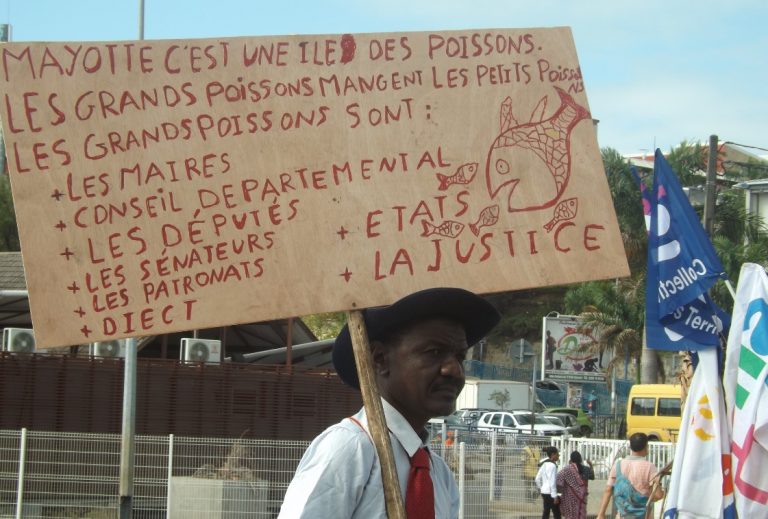 MAYOTTE C'EST UNE ILES DES POISSONS.
LES GRANDS POISSONS MANGENT LES PETITS POISSONS
LES GRANDS POISSONS SONT :
+LES MAIRES
+CONSEIL DEPARTEMENTAL
+LES DÉPUTÉS
+LES SÉNATEURS
+LES PATRONATS
+DIECT
+ETATS
+LA JUSTICE
Collecti
s Terri